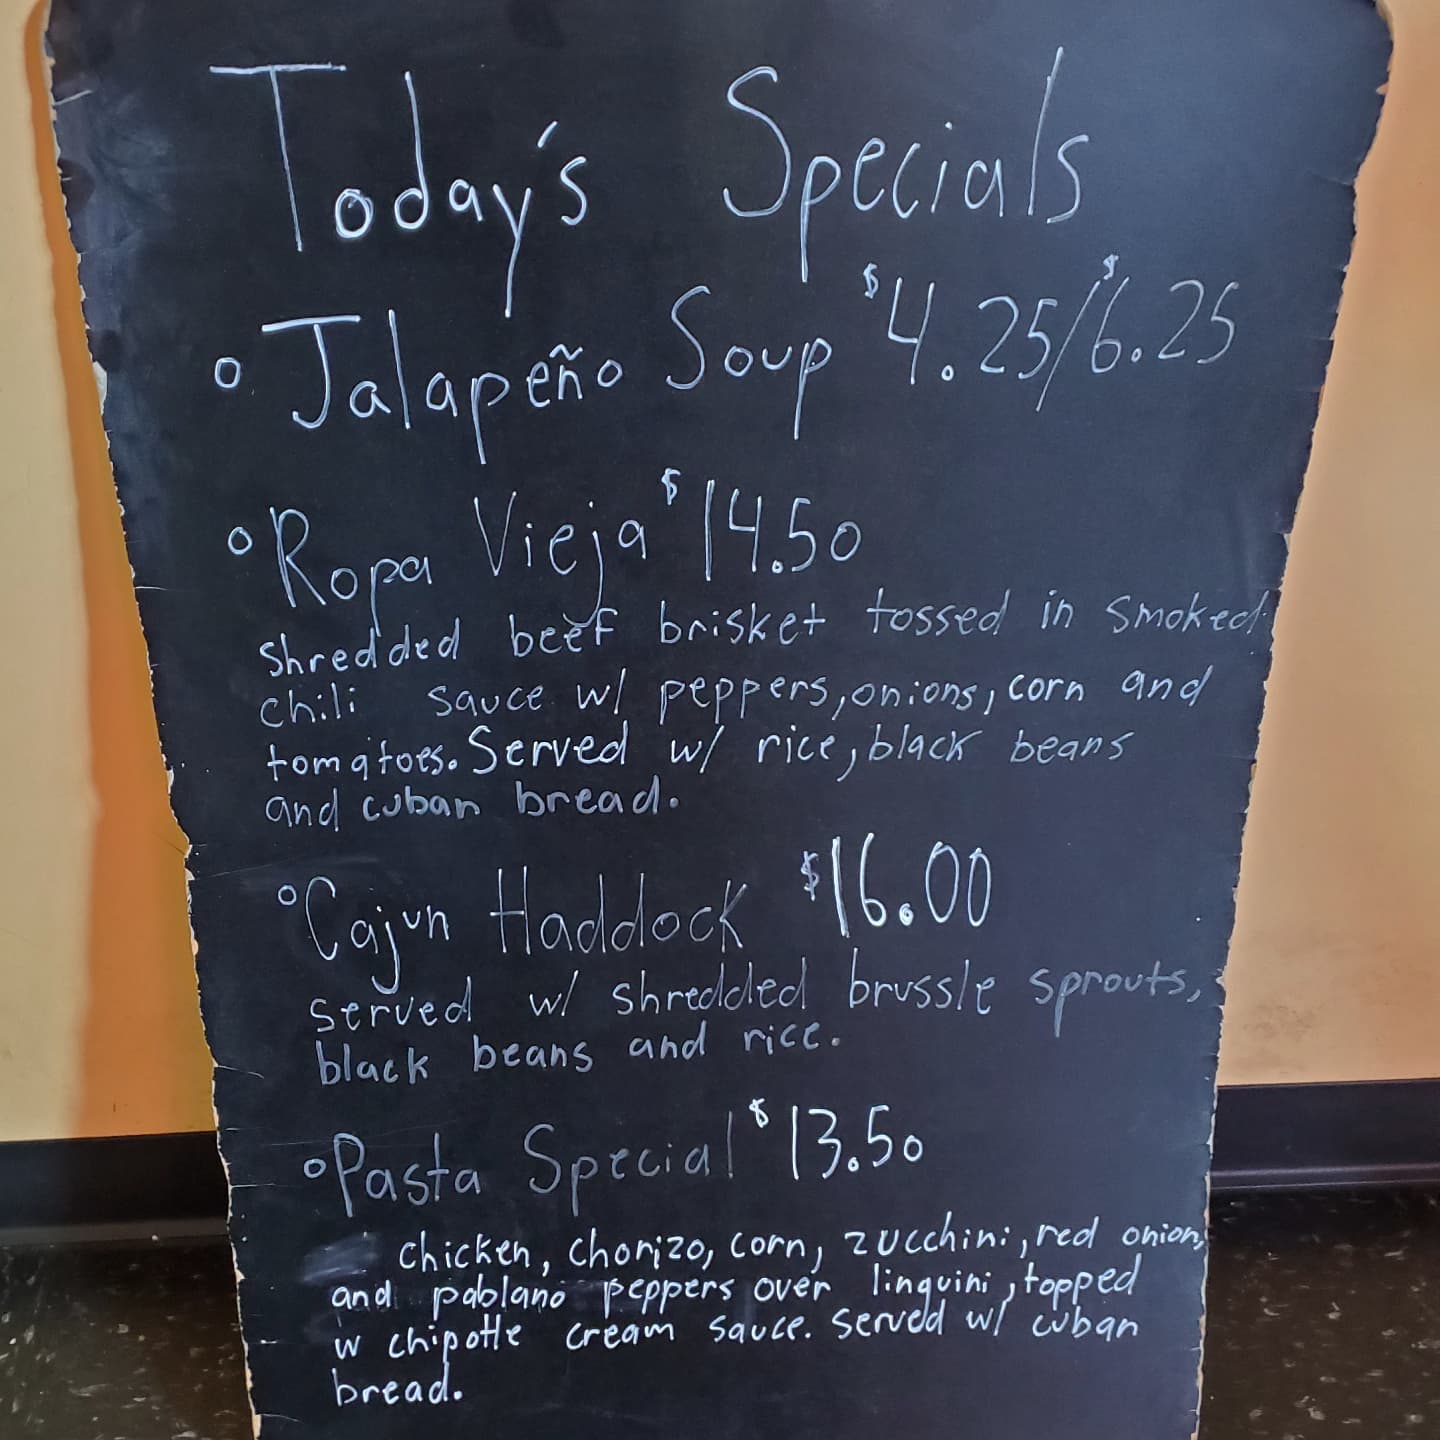 Today's Specials
Jalapeño Soup $4.25/$6.25
Ropa Vieja $14.50
shredded beef brisket tossed in smoked
chili sauce w/ peppers, onions, corn and
tomatoes. Served w/ rice, black beans
and cuban bread.
Cajun Haddock $16.00
served w/ shredded brussle sprouts,
black beans and rice.
Pasta Special $13.50
chicken, chorizo, corn, zucchini, red onion,
and pablano peppers over linguini, topped
w chipotle cream sauce. served w/ cuban
bread.